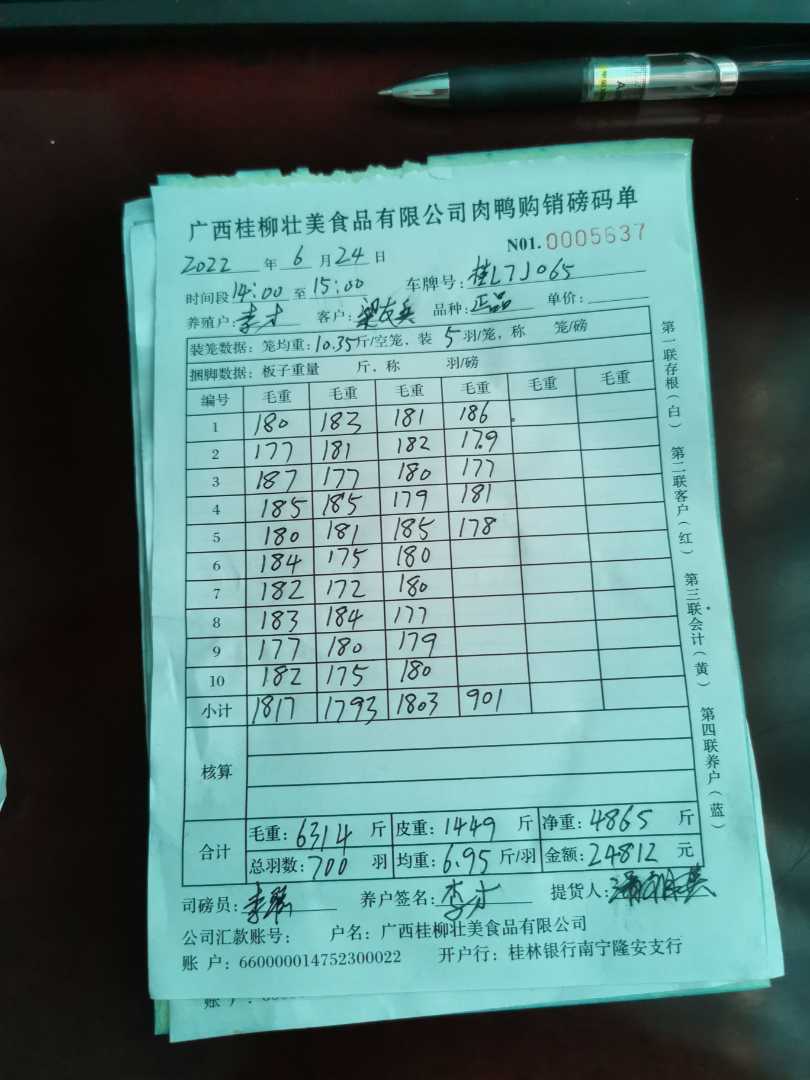 广西桂柳壮美食品有限公司肉鸭购销磅码单
N01.0005637
2022 年 6 月 24 日
时间段 14:00 至 15:00 车牌号: 桂L7J065
养殖户: 李才 客户: 梁友兵 品种: 正品 单价:
装笼数据: 笼均重: 10.35 斤/空笼, 装 5 羽/笼, 称 笼/磅
捆脚数据: 板子重量 斤, 称 羽/磅
编号 毛重 毛重 毛重 毛重 毛重 毛重
1 180 183 181 186
2 177 181 182 179
3 187 177 180 177
4 185 185 179 181
5 180 181 185 178
6 184 175 180
7 182 172 180
8 183 184 177
9 177 180 179
10 182 175 180
小计 1817 1793 1803 901
核算
合计 毛重: 6314 斤 皮重: 1449 斤 净重: 4865 斤
总羽数: 700 羽 均重: 6.95 斤/羽 金额: 24812 元
司磅员: 养户签名: 李才 提货人:
公司汇款账号: 户名: 广西桂柳壮美食品有限公司
账 户: 660000014752300022 开户行: 桂林银行南宁隆安支行
第一联存根(白) 第二联客户(红) 第三联会计(黄) 第四联养户(蓝)
账 户: